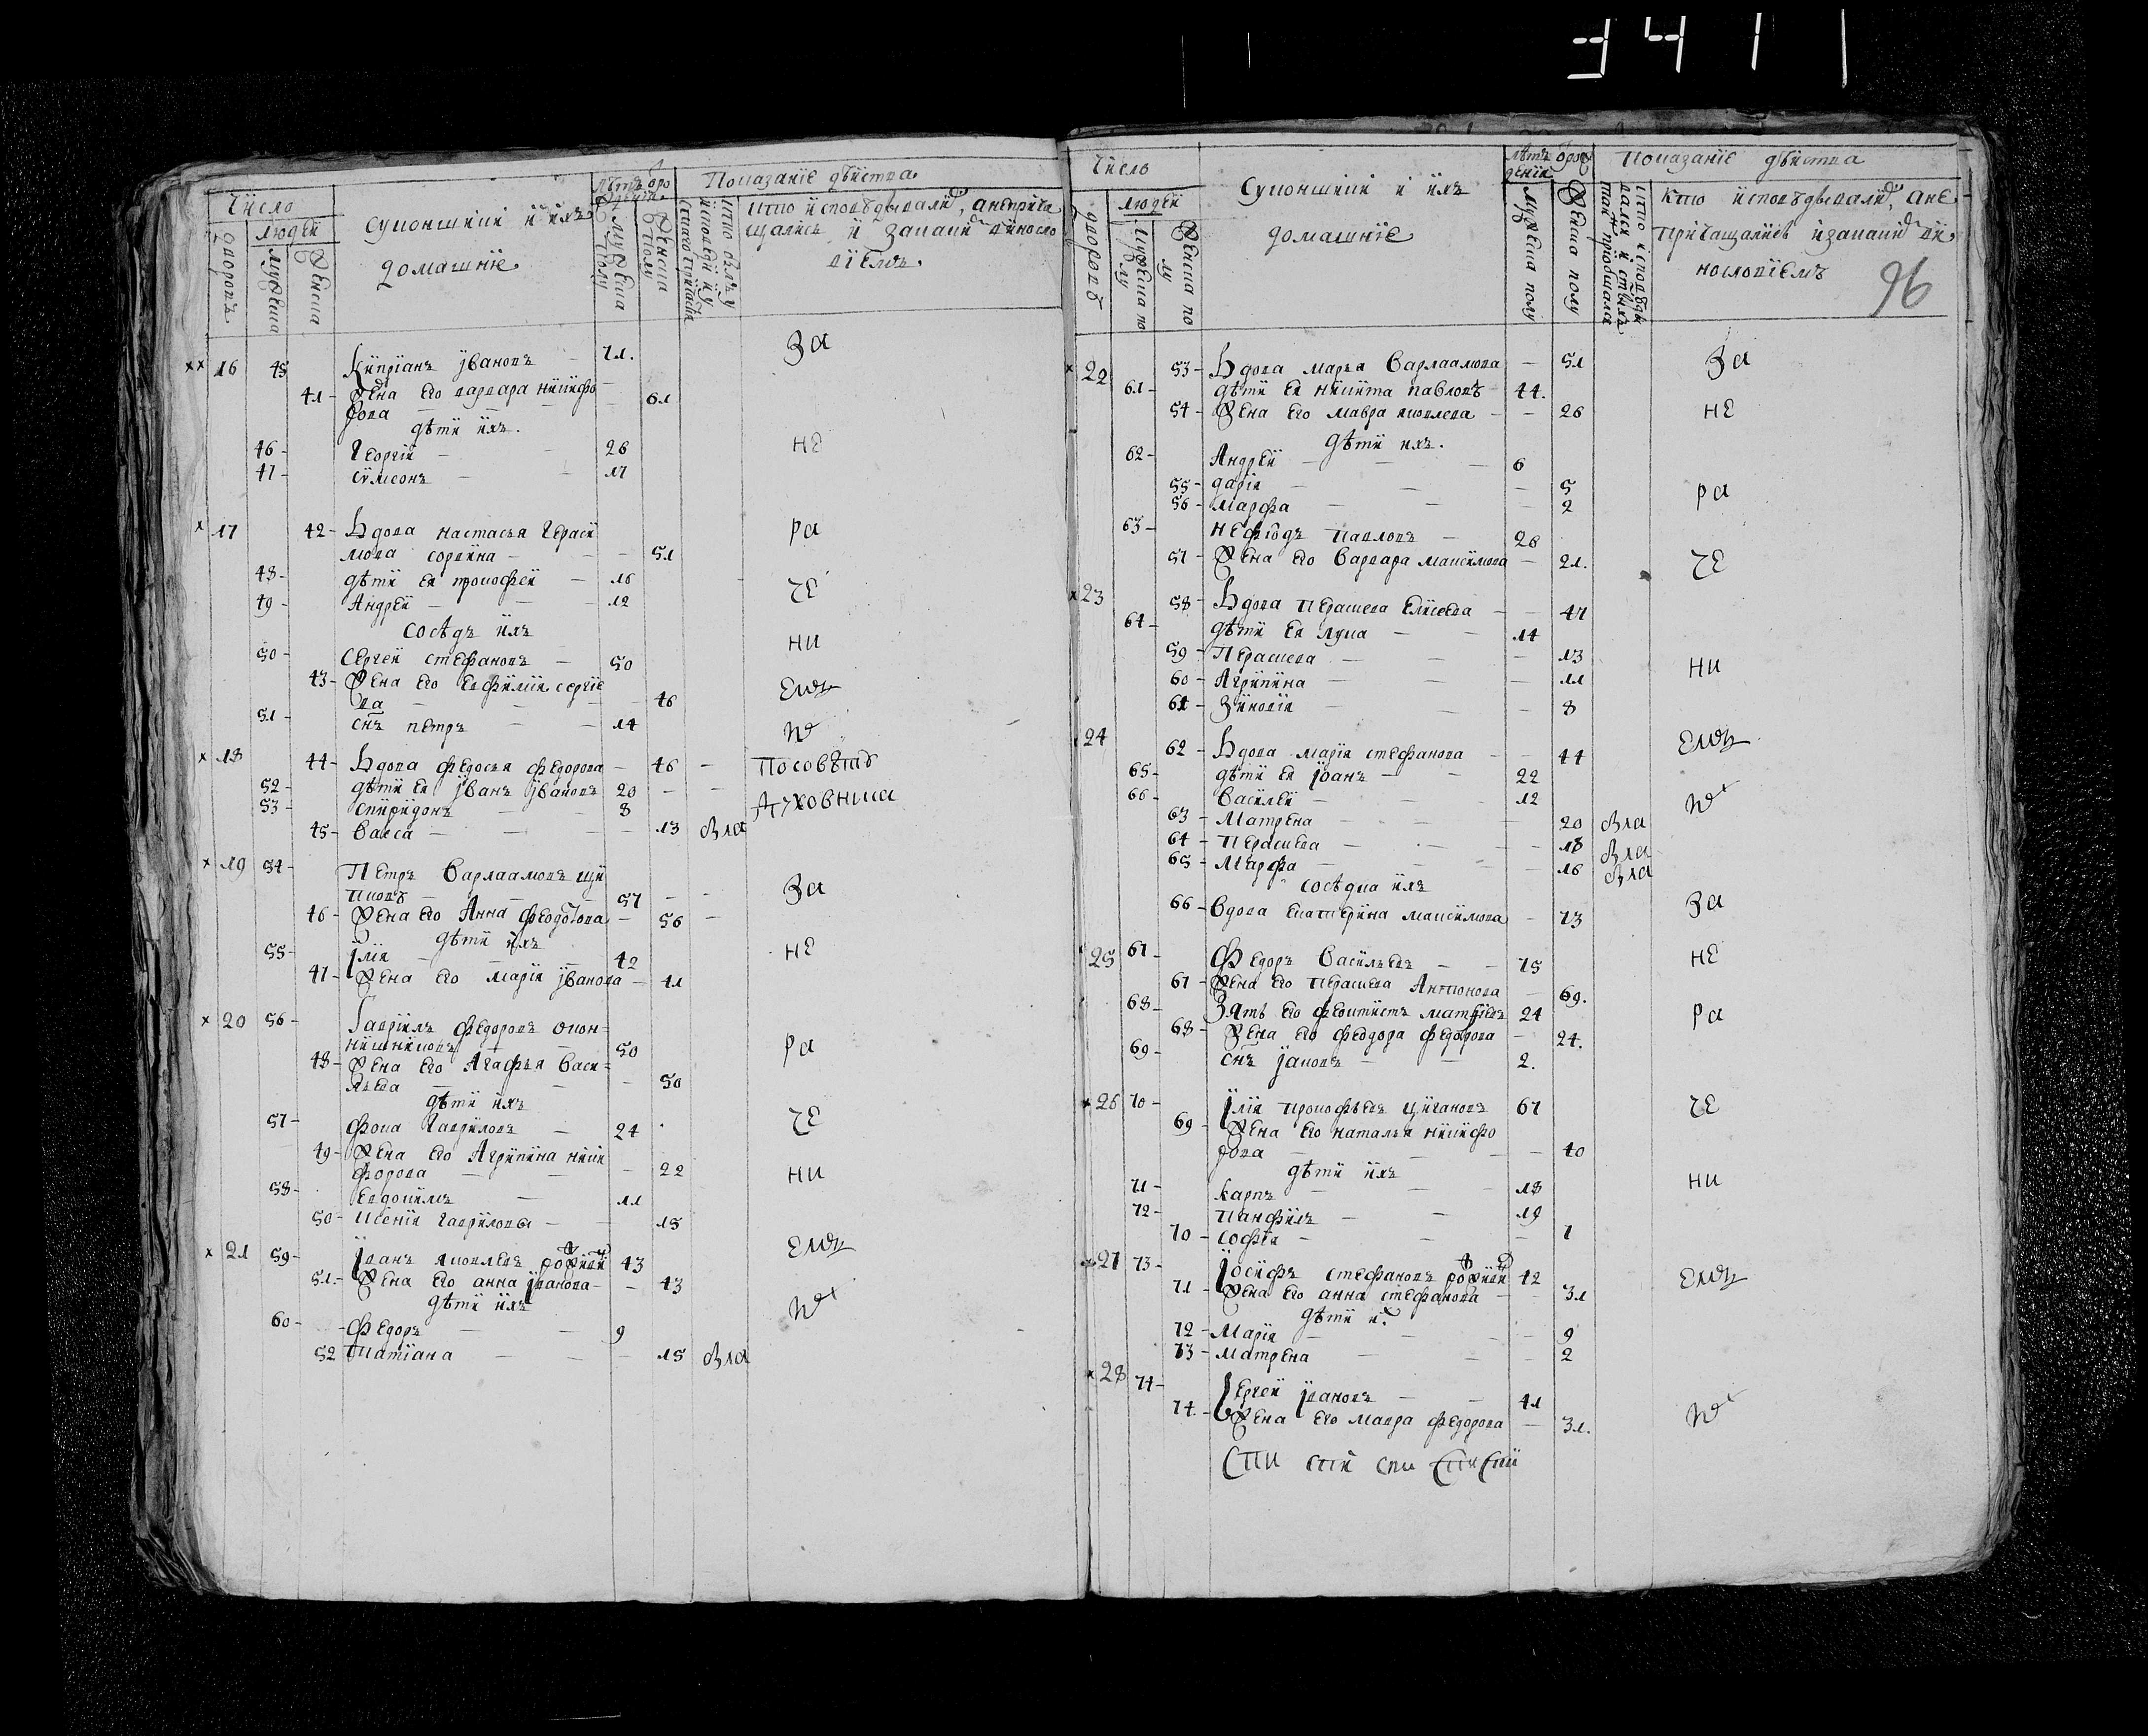 Число
людей
дворовъ
мужеска
женска
Супоншики и ихъ
домашнїе
Лѣтъ от рож
дения
мужеска
полу
женска
полу
Показанїе дѣйства
Кто исповѣдывалис, а не прича
щались и за каким винослo
вїемъ.
За
xx 16 45 Кипріанъ Iвановъ — 71.
41 - жена его варвара никифо
рова — 61
дѣти ихъ.
46 - Георгїй — 26 не
47 - сѵмеонъ — 17
x 17 42 - Вдова настасья Гераси ра
мова — 51
48 - дѣти ея прокофей — 16 че
49 - Андрей — 12
сосѣдъ ихъ
50 - Сергей стефановъ — 50 ни
43 - жена его евфимия сергѣе
ва — 46
51 - снъ петръ — 14
x 18 44 - Вдова федосья федорова — 46 - по совѣтаѣ
52 - дѣти ея Iванъ Iвановъ 20 - -
53 - спиридонъ 8 духовника
45 - Васса — 13
x 19 54 - Петръ Варлаамовъ щи
пковъ — 57 - - За
46 - жена его Анна федотова — 56 -
дѣти ихъ
55 - Iлїя — 42 не
47 - жена его марїя Iванова — 41
x 20 56 - Гаврїилъ федоровъ окон=
нишниковъ 50 ра
48 - жена его Агафья Васи=
льева — 50
дѣти ихъ
57 - фока гавриловъ — 24 че
49 - жена его Агрипина ники
форова — 22 ни
58 - Евдокимъ — 11
50 - Ксенїя гаврилова — 15
x 21 59 - Iванъ яковлевъ 43
51 - жена его анна Iванова — 43
дѣти ихъ
60 - Федоръ — 9
52 Татїана — 15
Число
людей
дворовъ
мужеска по
лу
женска по
лу
Супоншики и ихъ
домашнїе
лѣтъ от рож
дения
мужеска полу
женска полу
Показанїе дѣйства
Кто исповѣдывалис, а не
причащались и за каким ви
нословїемъ
96
x 22 53 - Вдова марья Варлаамова — 51 За
61 - дѣти ея никита павловъ — 44.
54 - жена его мавра яковлева — 26 не
дѣти ихъ.
62 - Андрей — 6
55 - дарїя — 5 ра
56 - марфа — 2
63 - нефїодъ павловъ — 26
57 - жена его Варвара максимова — 21. че
x 23 58 - Вдова Парасkева Елисеева — 47
64 - дѣти ея лука — 14
59 - Параскева — 13 ни
60 - Агрипина — 11
61 - Зиновїя — 8
24 62 - Вдова марїя стефанова — 44
65 - дѣти ея Iванъ — 22
66 - Василїй — 12
63 - Матрена — 20
64 - Параскева — 18
65 - Марфа — 16
сосѣдка ихъ
66 - Вдова екатерина максимова — 73 За
25 67 - Федоръ Васильевъ — 75 не
67 - жена его параскева Антонова — 69.
68 - Зять его феоктистъ матфїевъ 24 ра
68 - жена его феодора федорова — 24.
69 - снъ Iаковъ — 2.
x 26 70 - Iлїя прокофьевъ цигановъ 67 че
69 - жена его наталья никифо
рова — 40
дѣти ихъ
71 - Карпъ — 18 ни
72 - панфилъ — 19
70 - софїя — 7
27 73 - Iосифъ стефановъ 42
71 - жена его анна стефанова — 31
дѣти их
72 - Марїя — 9
73 - матрена — 2
x 28 74 - Сергей Iвановъ — 41
74 - жена его мавра федорова — 31.